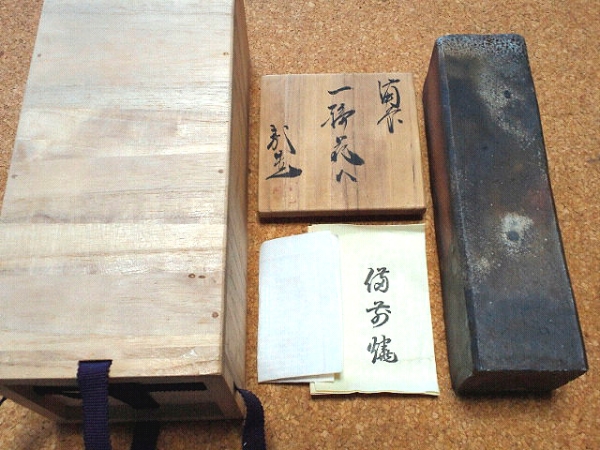 備前
一輪花入
備前焼